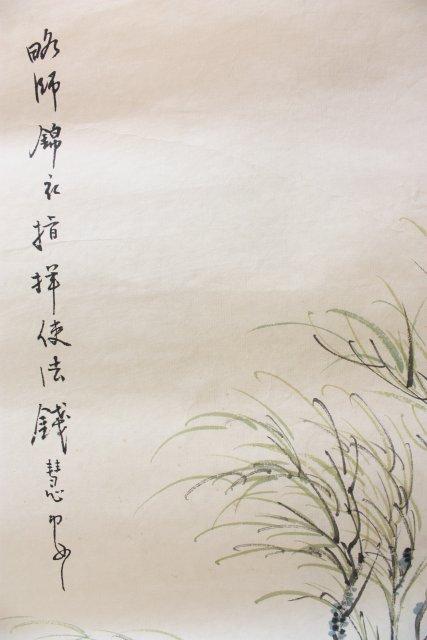 略師錦衣指揮使法錢慧